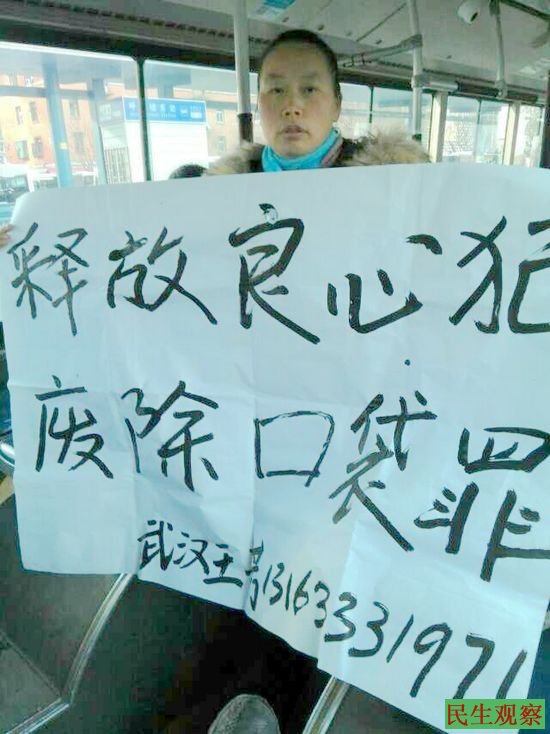 释放良心犯
废除口袋罪
武汉王芳13163331971
民生观察